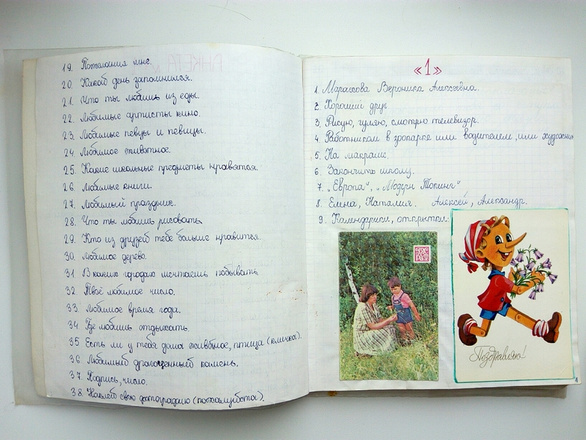 19. Пожелания мне.
20. Какой день запомнился.
21. Что ты любишь из еды.
22. Любимые артисты кино.
23. Любимые певцы и певицы.
24. Любимое животное.
25. Какие школьные предметы нравятся.
26. Любимые книги.
27. Любимый праздник.
28. Что ты любишь рисовать.
29. Кто из друзей тебе больше нравится.
30. Любимое дерево.
31. В каких городах мечтаешь побывать.
32. Твоё любимое число.
33. Любимое время года.
34. Где любишь отдыхать.
35. Есть ли у тебя дома животное, птица (кличка).
36. Любимый драгоценный камень.
37. Подпись, число.
38. Наклей свою фотографию (пожалуйста).
«1»
1. Вероника
2. Хороший друг.
3. Рисую, гуляю, смотрю телевизор.
4. Работником в зоопарке или водителем, или художник
5. На макраме.
6. Закончить школу.
7. „Европа", „Модерн Токинг"
8. Елена, Наталия. Алексей, Александр.
9. Календарики, открытки
Поздравляю!